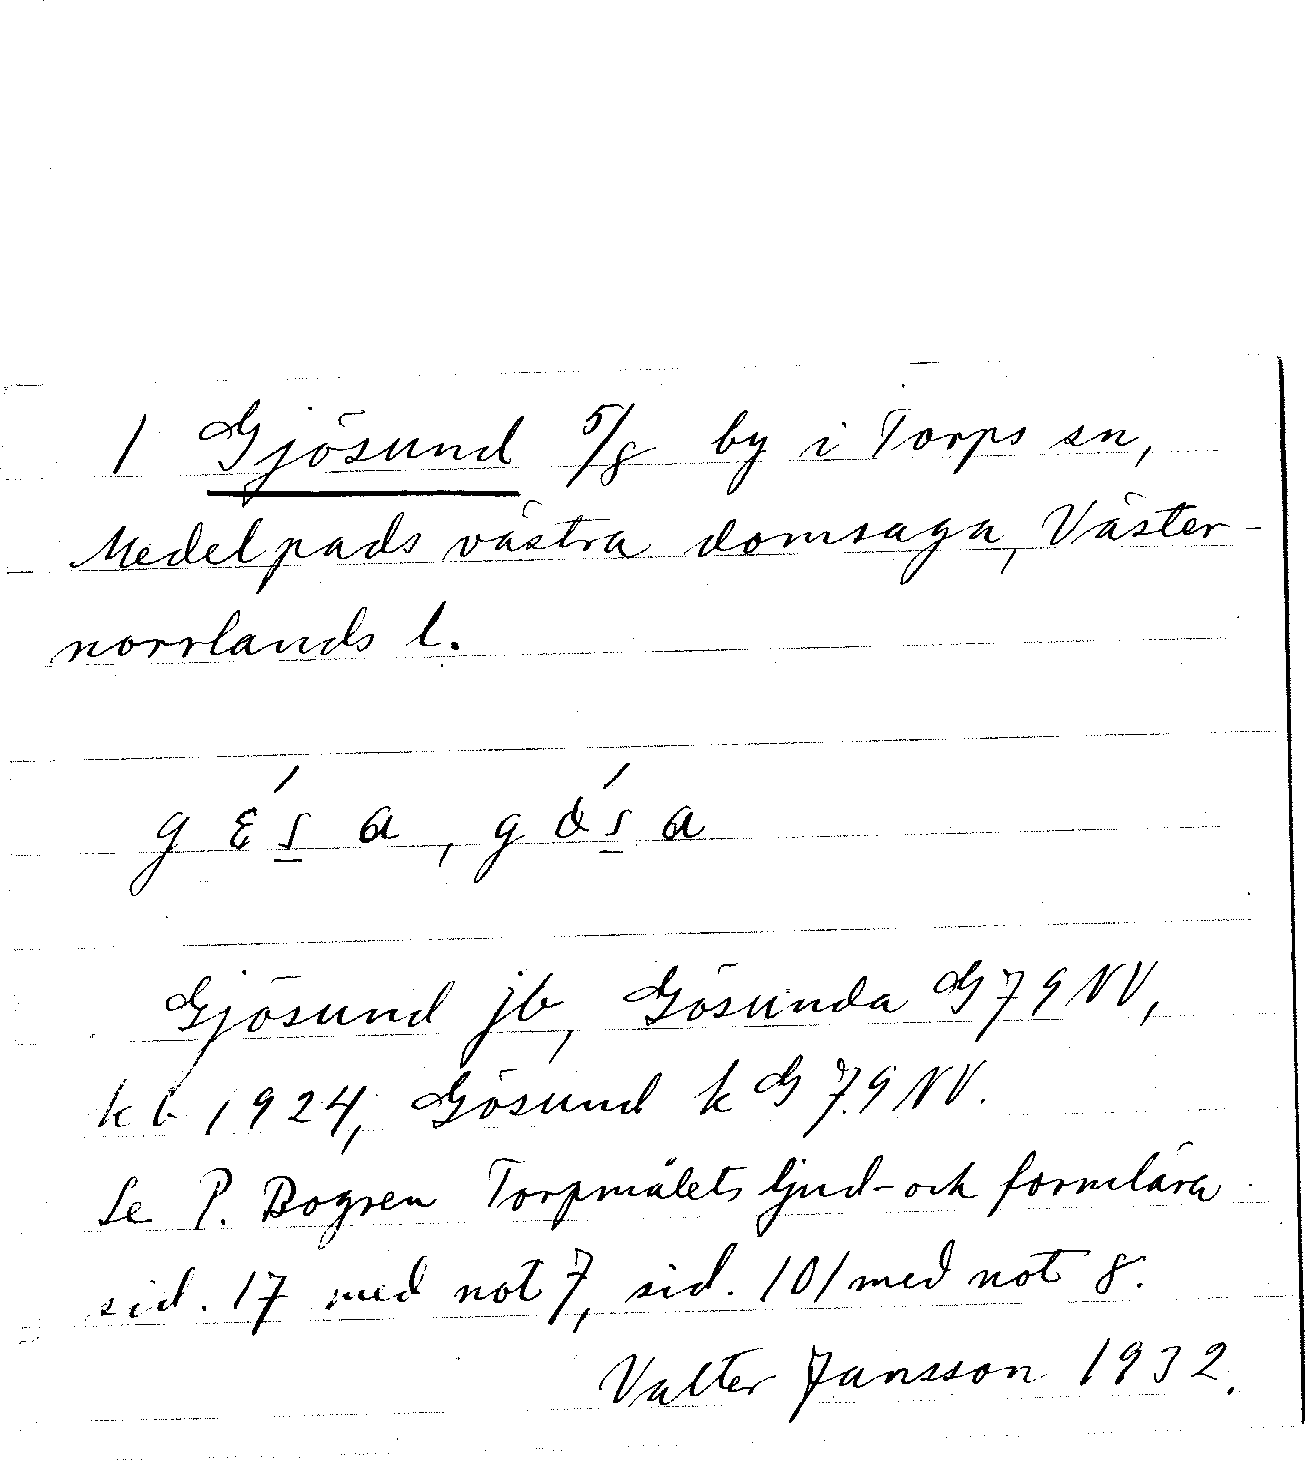 1 Gjösund 5/8 by i Torps sn,
Medelpads västra domsaga, Väster-
norrlands l.
Gjösund jb, Gösunda G 79 NV,
kb 1924, Gösund k G 79 NV.
Se P. Bogren Torpmålets ljud- och formlära
sid. 17 med not 7, sid. 101 med not 8.
Valter Jansson 1932.